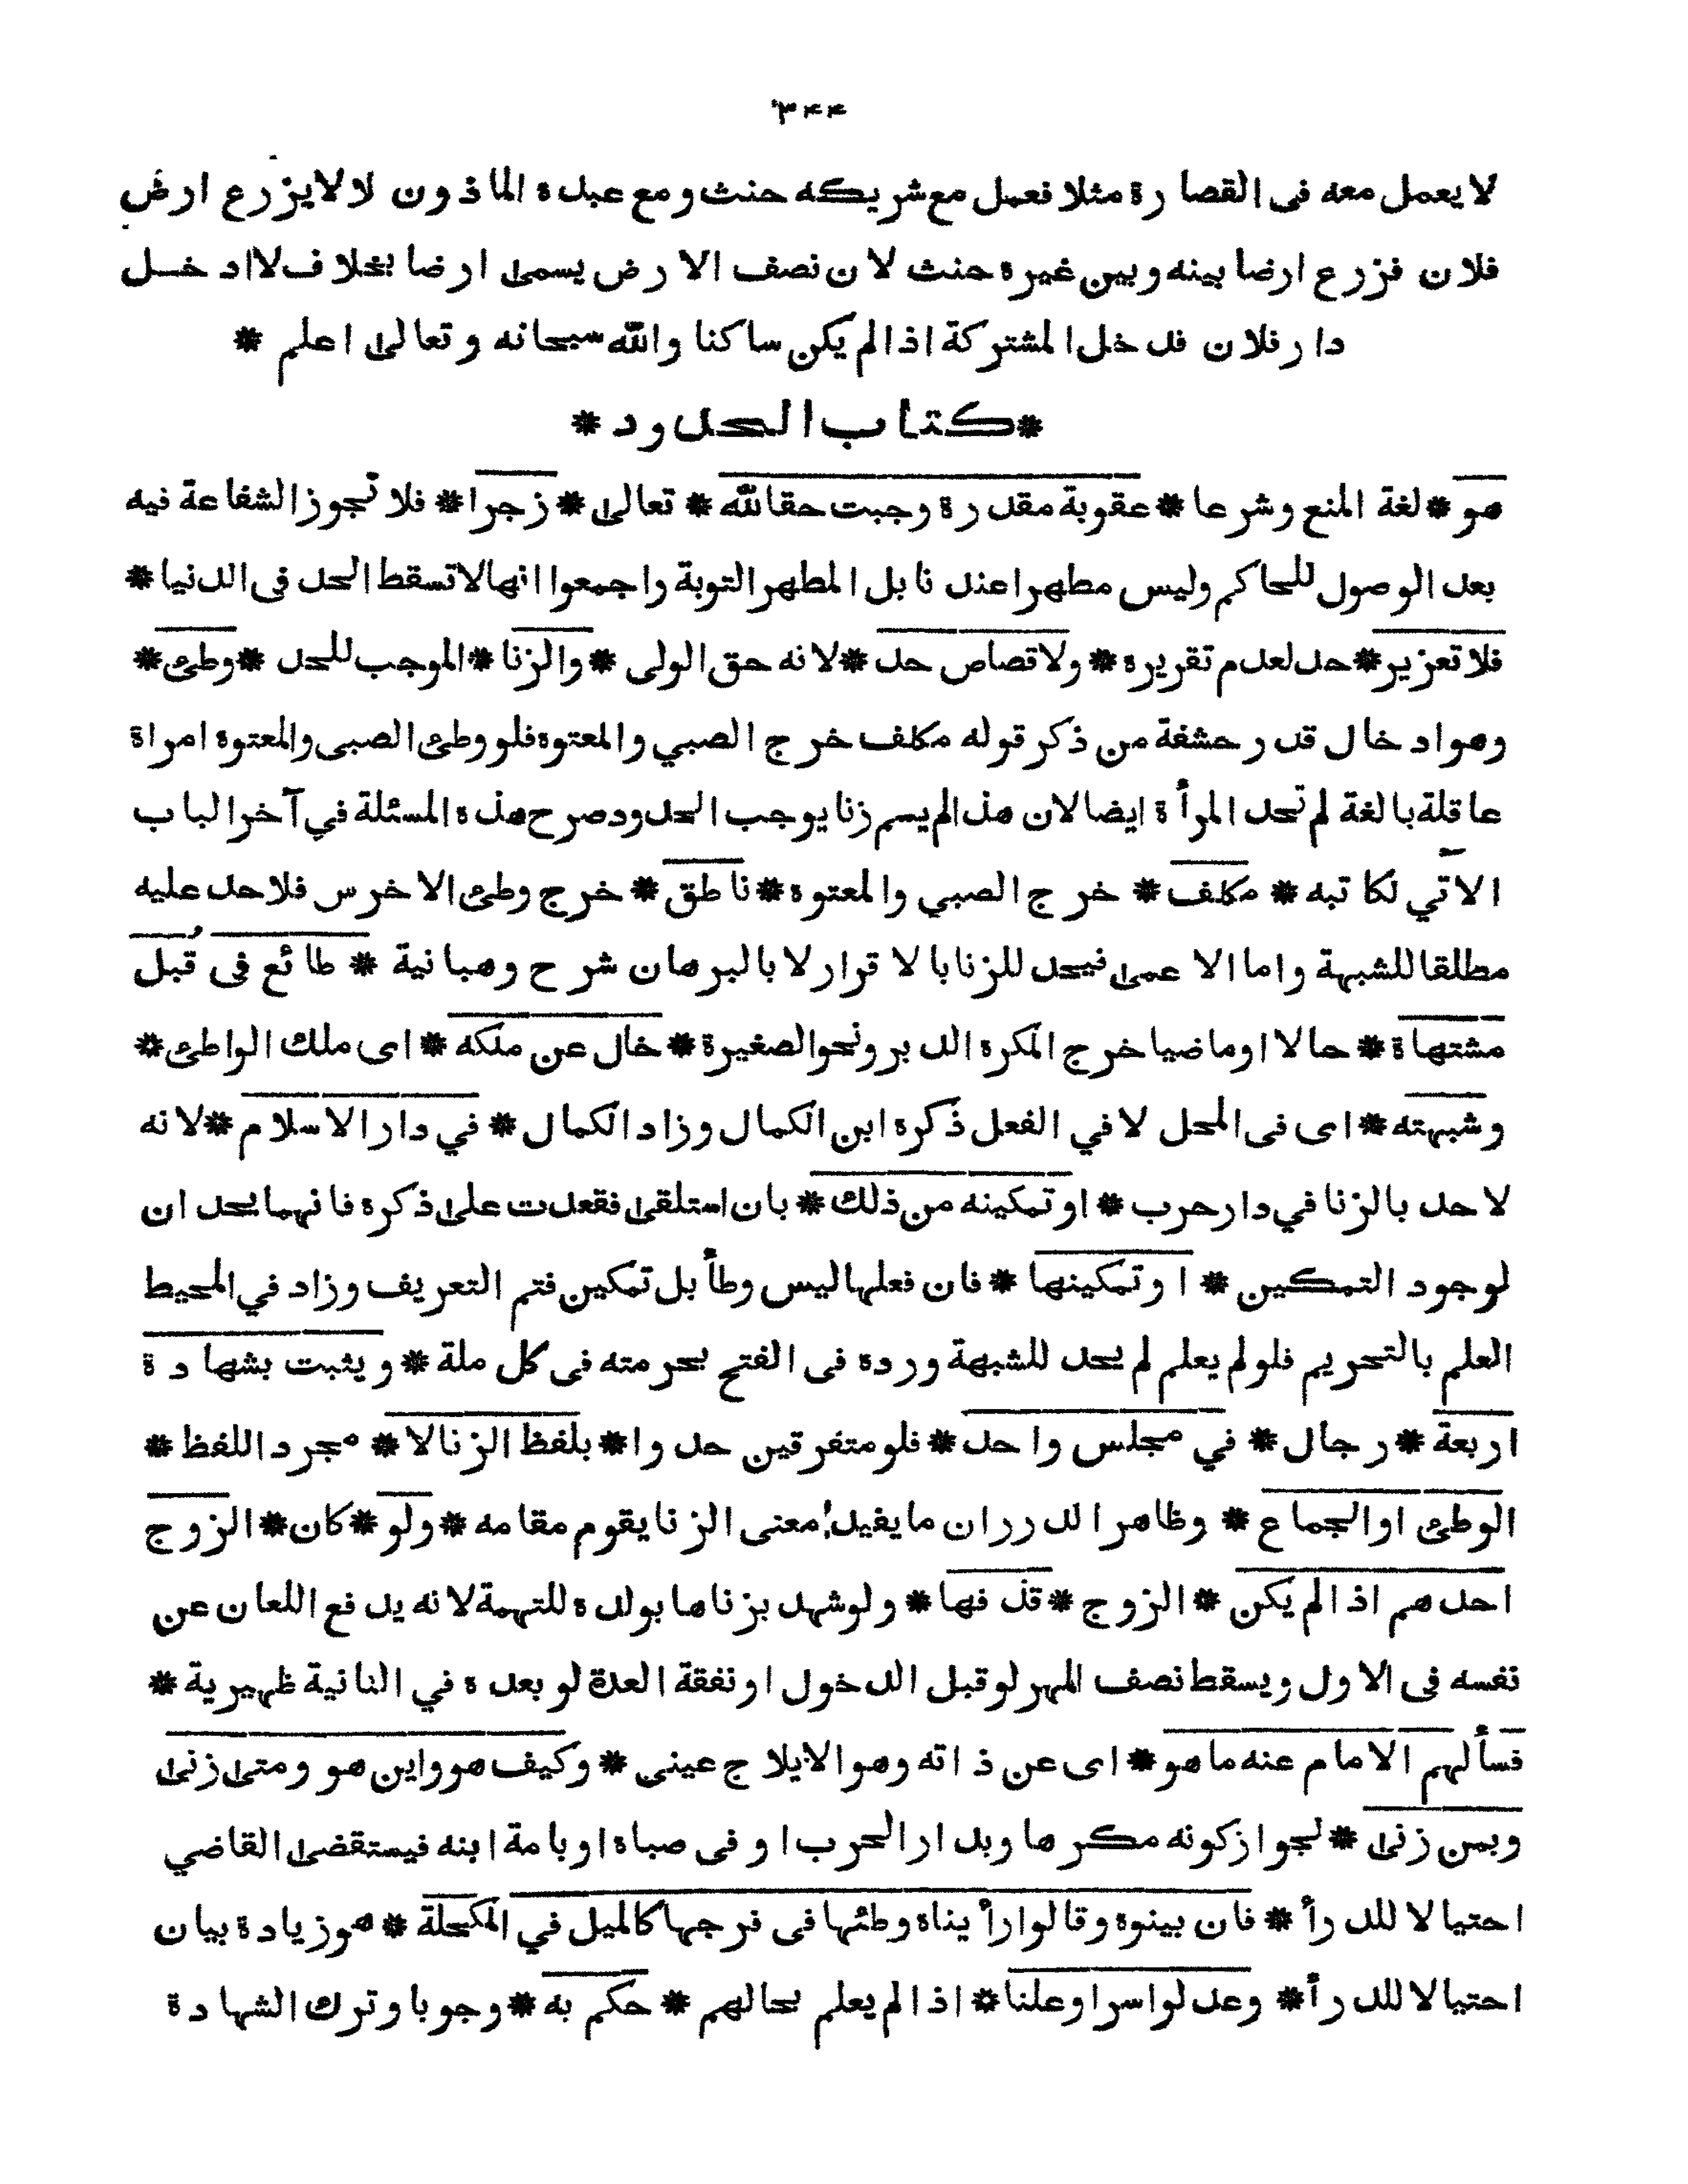 ۳۴۴
لا يعمل معه فى القصارة مثلا فعمل مع شريكه حنث ومع عبده الماذون لا لايزرع ارض
فلان فزرع ارضا بينه وبين غيره حنث لان نصف الارض يسمى ارضا بخلاف لاادخل
دار فلان فدخل المشتركة اذا لم يكن ساكنا والله سبحانه وتعالى اعلم *
*كتاب الحدود*
هو * لغة المنع وشرعا * عقوبة مقدرة وجبت حقالله * تعالى * زجرا * فلا تجوز الشفاعة فيه
بعد الوصول للحاكم وليس مطهرا عندنا بل المطهر التوبة واجمعوا انها لا تسقط الحد فى الدنيا *
فلا تعزير * حد لعدم تقريره * ولا قصاص حد * لانه حق الولى * والزنا * الموجب للحد * وطئ *
وهو ادخال قدر حشفة من ذكر قوله مكلف خرج الصبي والمعتوه فلو وطئ الصبى والمعتوه امراة
عاقلة بالغة لم تحد المرأة ايضا لان هذا لم يسم زنا يوجب الحدود صرح هذه المسئلة في آخر الباب
الآتي لكاتبه * مكلف * خرج الصبي والمعتوه * ناطق * خرج وطئ الاخرس فلا حد عليه
مطلقا للشبهة واما الاعمى فيحد للزنا بالاقرار لا بالبرهان شرح وهبانية * طائع فى قُبل
مشتهاة * حالا او ماضيا خرج المكره الدبر ونحو الصغيرة * خال عن ملكه * اى ملك الواطئ *
وشبهته * اى فى المحل لا في الفعل ذكره ابن الكمال وزاد الكمال * في دار الاسلام * لانه
لا حد بالزنا في دار حرب * او تمكينه من ذلك * بان استلقى فقعدت على ذكره فانهما يحد ان
لوجود التمكين * او تمكينها * فان فعلها ليس وطأ بل تمكين فتم التعريف وزاد في المحيط
العلم بالتحريم فلو لم يعلم لم يحد للشبهة ورده فى الفتح بحرمته فى كل ملة * ويثبت بشهادة
اربعة * رجال * في مجلس واحد * فلو متفرقين حدوا * بلفظ الزنا لا * مجرد اللفظ *
الوطئ او الجماع * وظاهر الدرر ان ما يفيد معنى الزنا يقوم مقامه * ولو * كان * الزوج
احدهم اذا لم يكن * الزوج * قذفها * ولو شهد بزناها بولده للتهمة لانه يدفع اللعان عن
نفسه فى الاول ويسقط نصف المهر لو قبل الدخول او نفقة العدة لو بعده في الثانية ظهيرية *
فسألهم الامام عنه ما هو * اى عن ذاته وهو الايلاج عينى * وكيف هو واين هو ومتى زنى
وبمن زنى * لجواز كونه مكرها وبدار الحرب او فى صباه او بامة ابنه فيستقضى القاضي
احتيالا للدرأ * فان بينوه وقالوا رأيناه وطئها فى فرجها كالميل في المكحلة * هو زيادة بيان
احتيالا للدرأ * وعدلوا سرا وعلنا * اذا لم يعلم بحالهم * حكم به * وجوبا وترك الشهادة